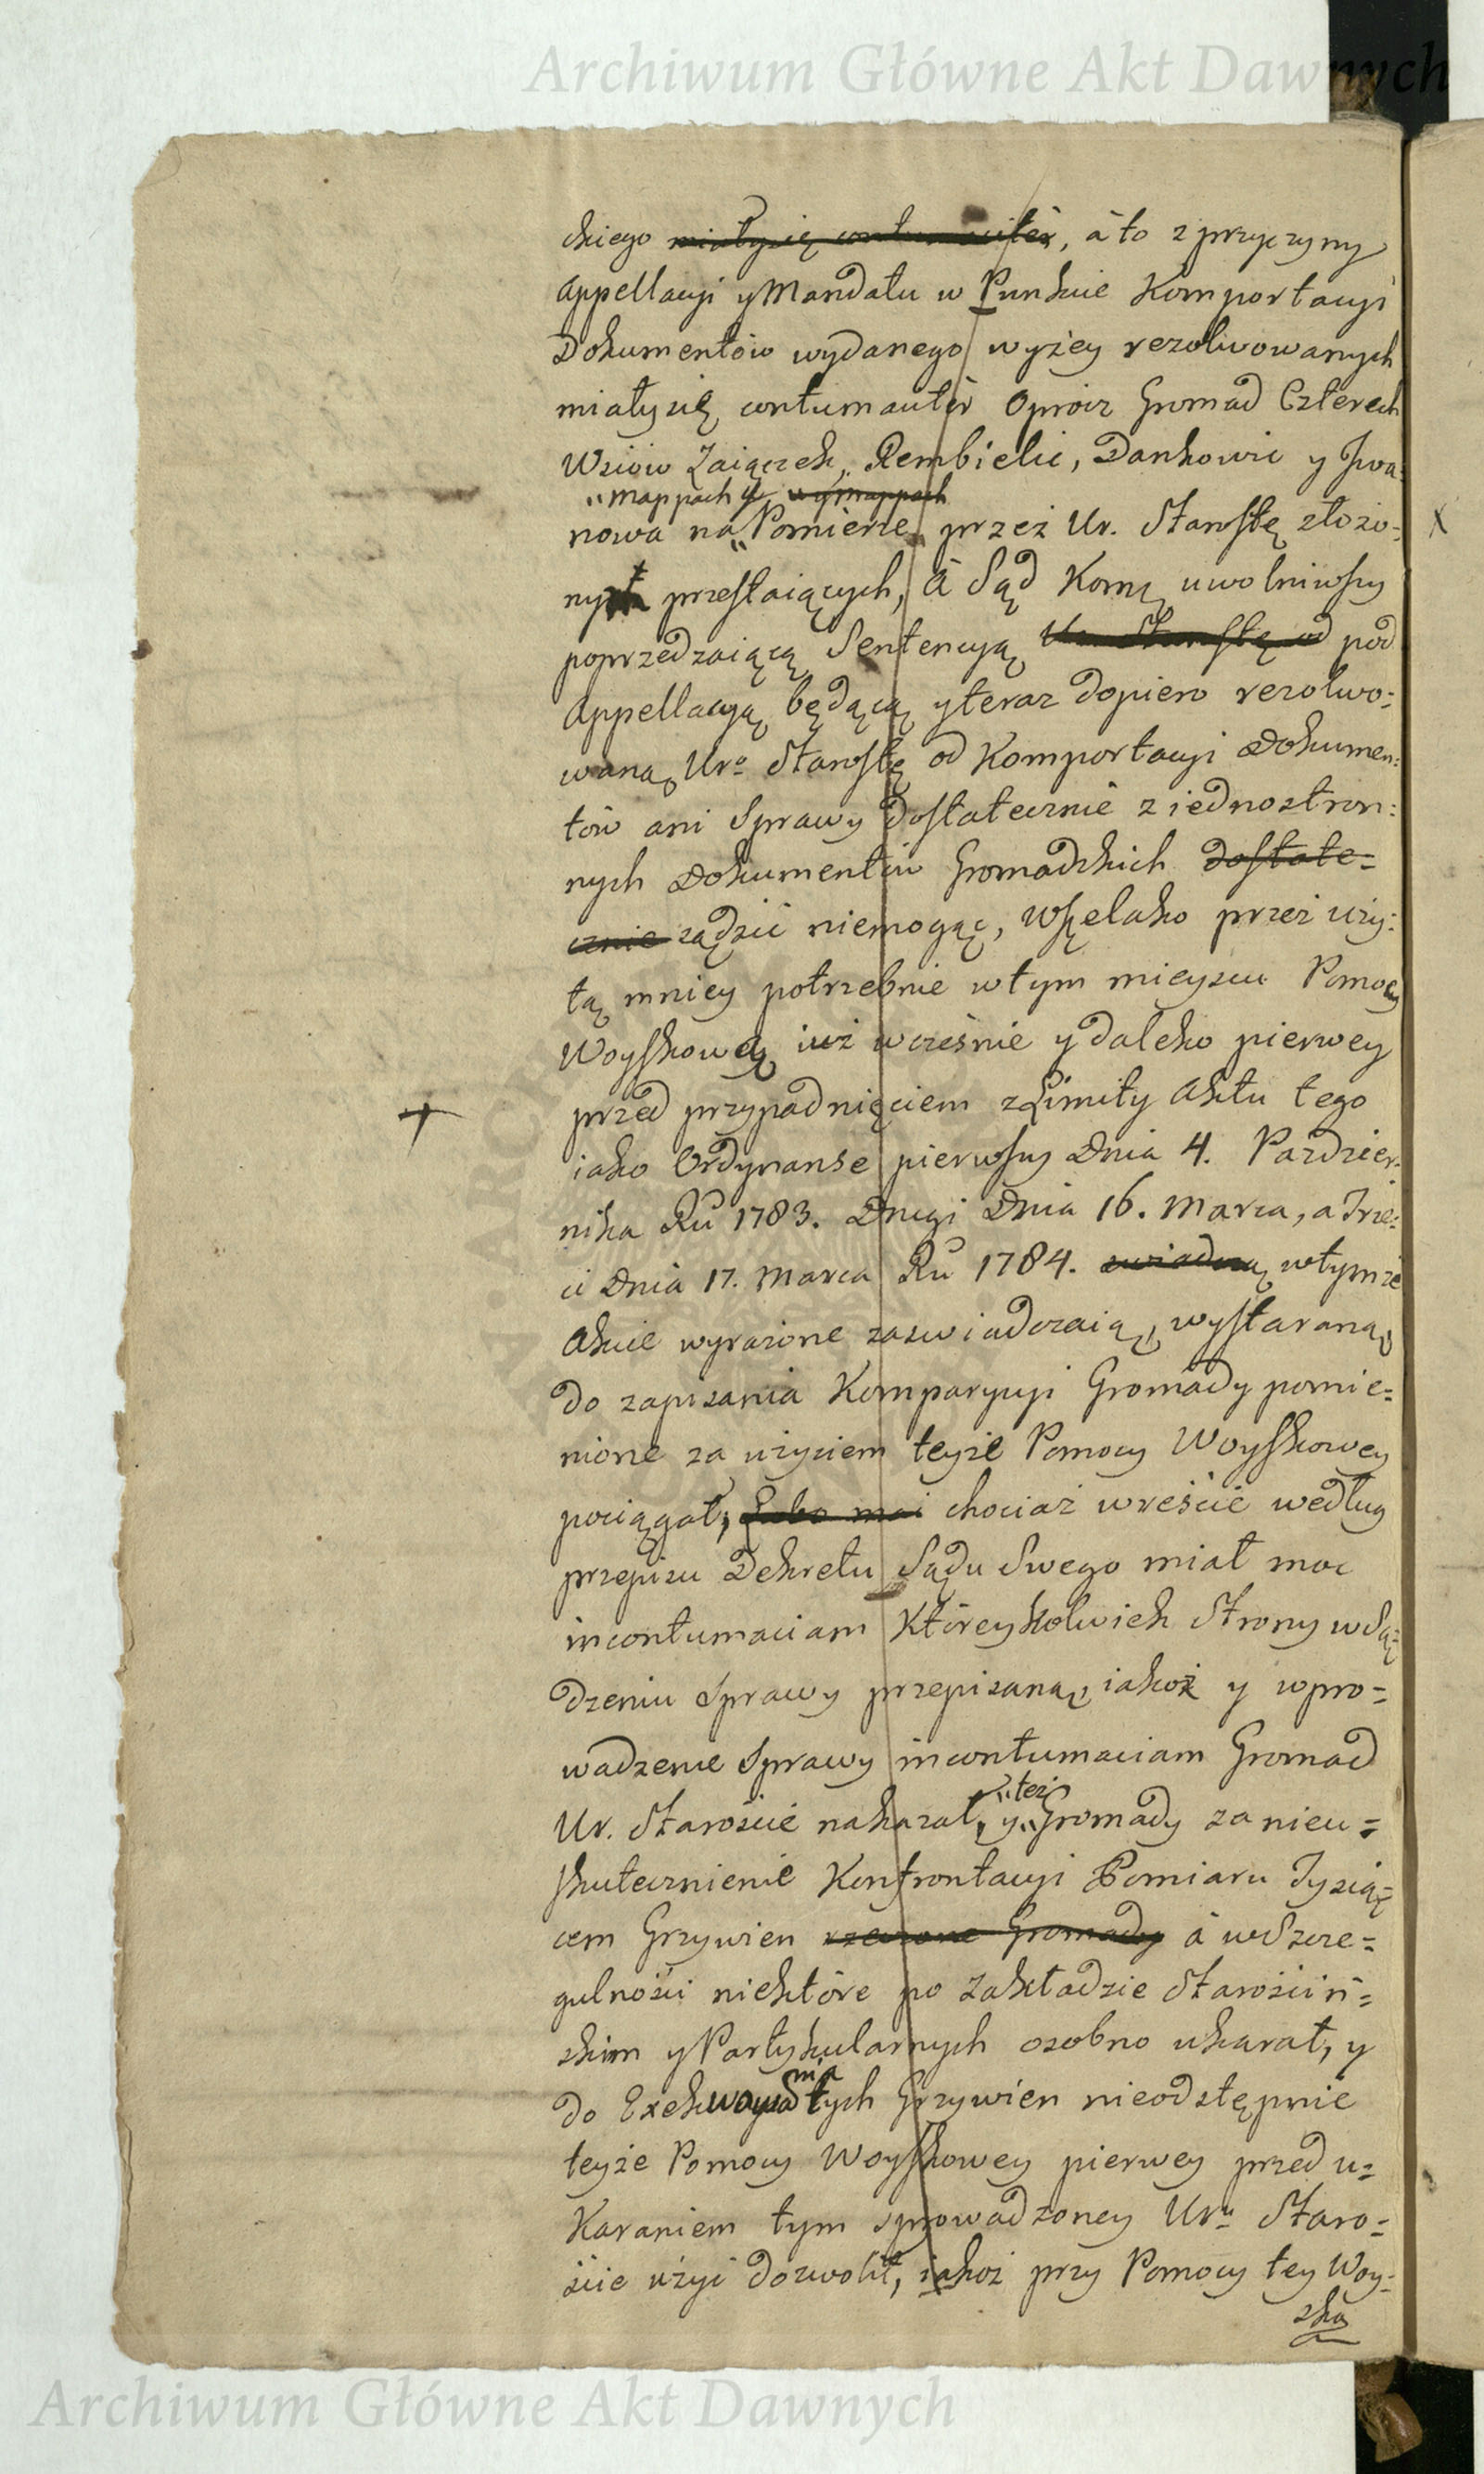 Archiwum Główne Akt Dawnych
ckiego miały się contumaciter, à to z przyczyny
Appellacyi y Mandatu w Punkcie Komportacyi
Dokumentów wydanego wyżey rezolwowanych
miały się contumaciter oprócz Gromad Czterech
Wsiów Zaiączek, Rembielic, Dankowic y Jwa-
"mappach y w mappach
nowa na "Pomierze przez Ur. Starostę złożo-
nych przestaiących, à Sąd Komię uwolniwszy
poprzedzaiącą Sentencyą Ur. Starostę od pod
Appellacyą będącą y teraz dopiero rezolwo-
waną Uro Starostę od Komportacyi Dokumen-
tów ani Sprawy dostatecznie z iednostron-
nych Dokumentów Gromadzkich dostate-
cznie sądzić niemogąc, wszelako przez uży-
tą mniey potrzebnie w tym mieyscu Pomoc
Woyskową iuż wcześnie y daleko pierwey
przed przypadnięciem z Limity Aktu tego
iako Ordynanse pierwszy Dnia 4. Pazdzier-
nika Ru 1783. Drugi Dnia 16. Marca, a Trze-
ci Dnia 17. Marca Ru 1784. zwiadczą w tymże
Akcie wyrażone zaswiadczaią, wystaraną
do zapisania Komparycyi Gromady pomie-
nione za użyciem teyże Pomocy Woyskowey
pociągał, Lubo mai chociaż wreście według
przepisu Dekretu Sądu Swego miał moc
in contumaciam Któreykolwiek Strony w Są-
dzeniu Sprawy przepisaną, iakoż y wpro-
wadzenie Sprawy in contumaciam Gromad
"też
Ur. Staroście nakazał, y "Gromady za nieu-
skutecznienie Konfrontacyi Pomiaru Tysią-
cem Grzywien rzeczone Gromady à w Szcze-
gulności niektóre po Zakładzie Starościń-
skim y Partykularnych osobno ukarał, y
nia
do Exekwowa tych Grzywien nieodstępnie
teyże Pomocy Woyskowey pierwey przed u-
karaniem tym sprowadzoney Uru Staro-
ście użyć dozwolił, iakoż przy Pomocy tey Woy-
ska
Archiwum Główne Akt Dawnych